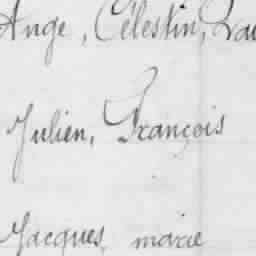 Ange, Célestin,
Julien, François
Jacques marie